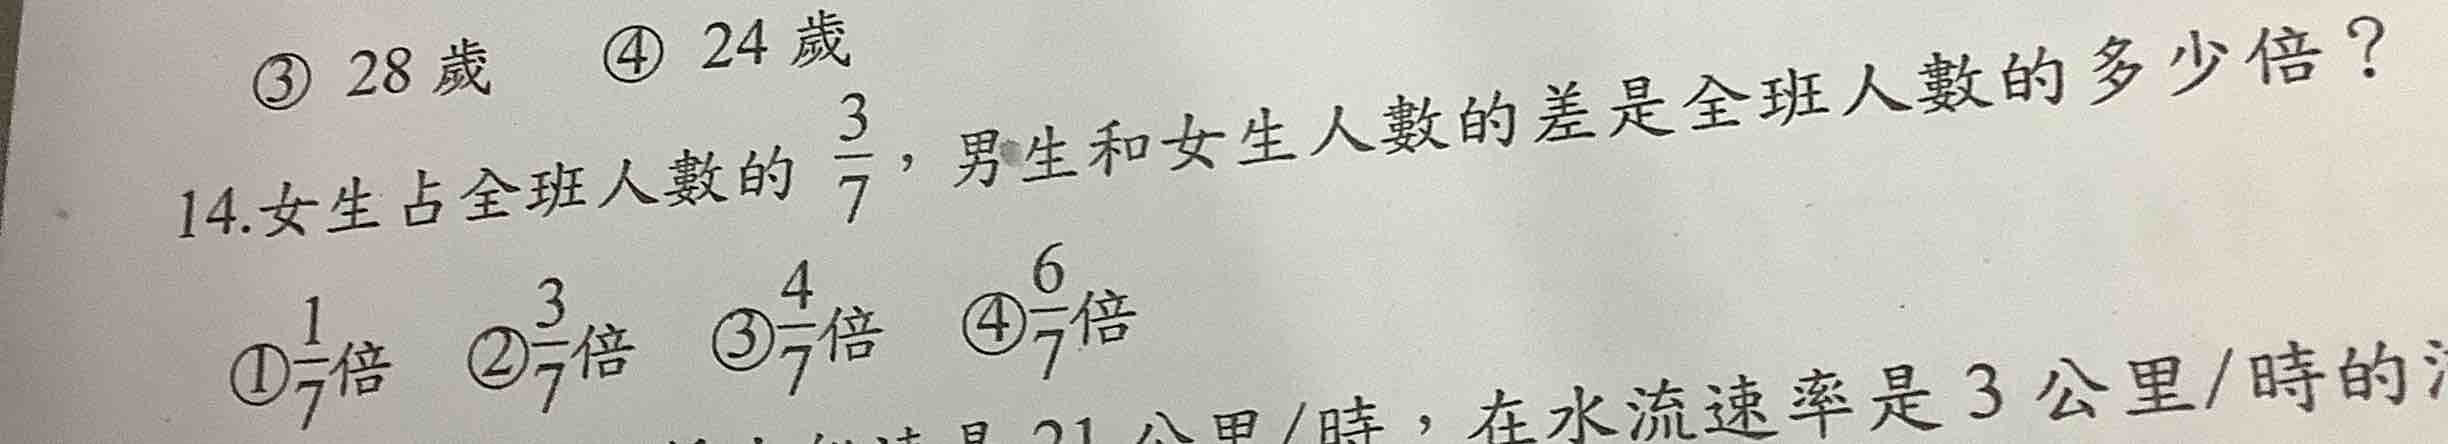 ③ 28 歲 ④ 24 歲
14.女生占全班人數的 3/7，男生和女生人數的差是全班人數的多少倍？
①1/7倍 ②3/7倍 ③4/7倍 ④6/7倍
是 21 公里/時，在水流速率是 3 公里/時的